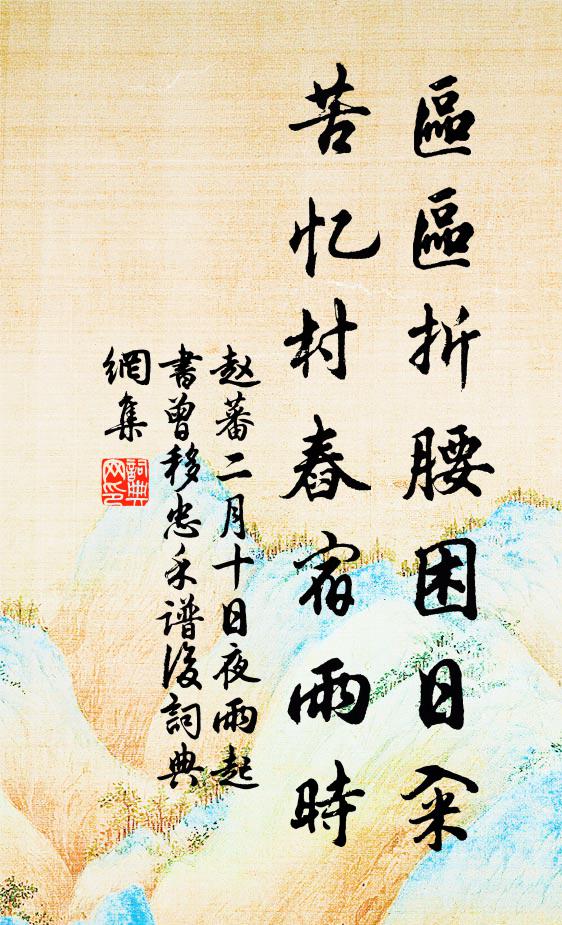 區區折腰困日籴
苦忆村舂宿雨時
赵蕃二月十日夜雨起
書曾移忠禾谱後詞典
網集
詞典
网印